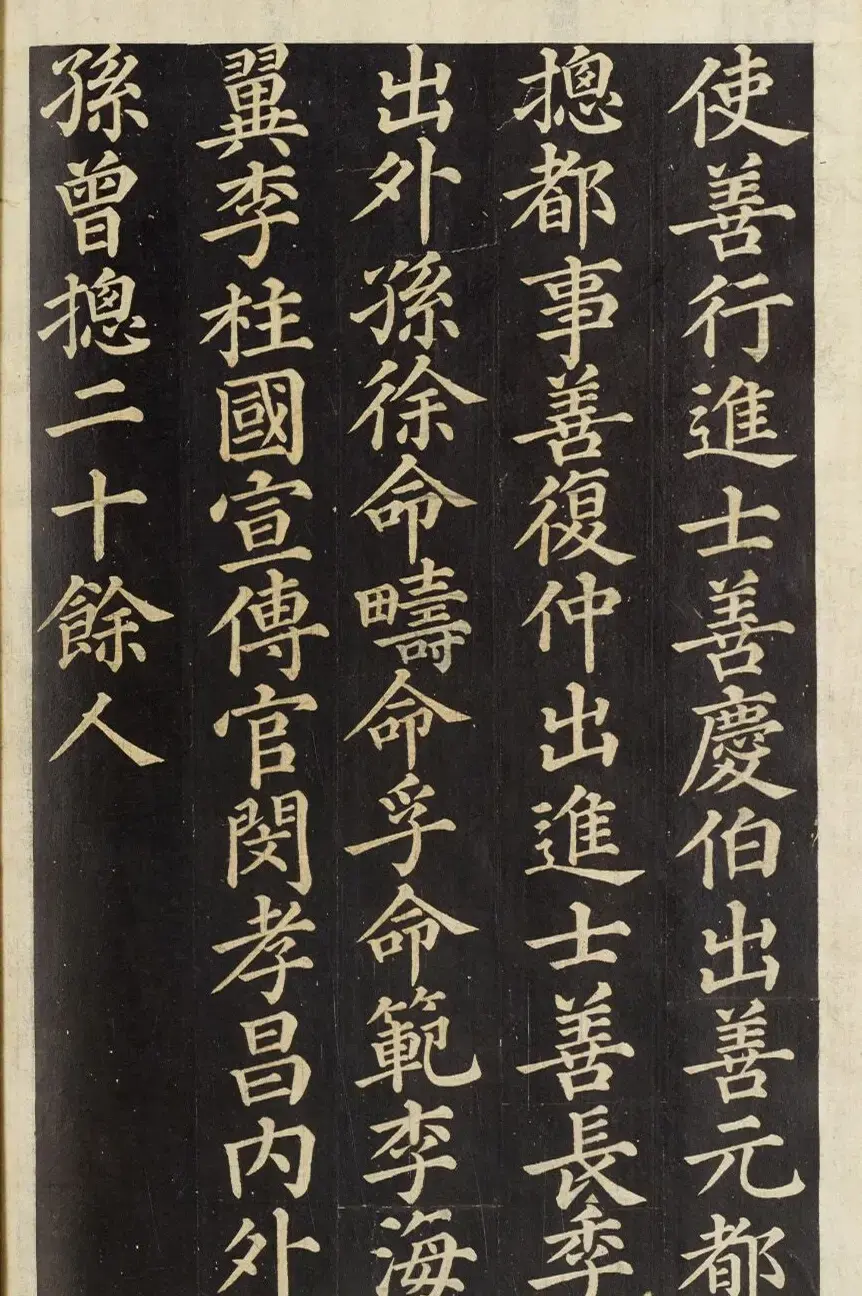 使善行進士善慶伯出善元都
摠都事善復仲出進士善長季
出外孫徐命疇命孚命範李海
翼李柱國宣傳官閔孝昌内外
孫曾摠二十餘人